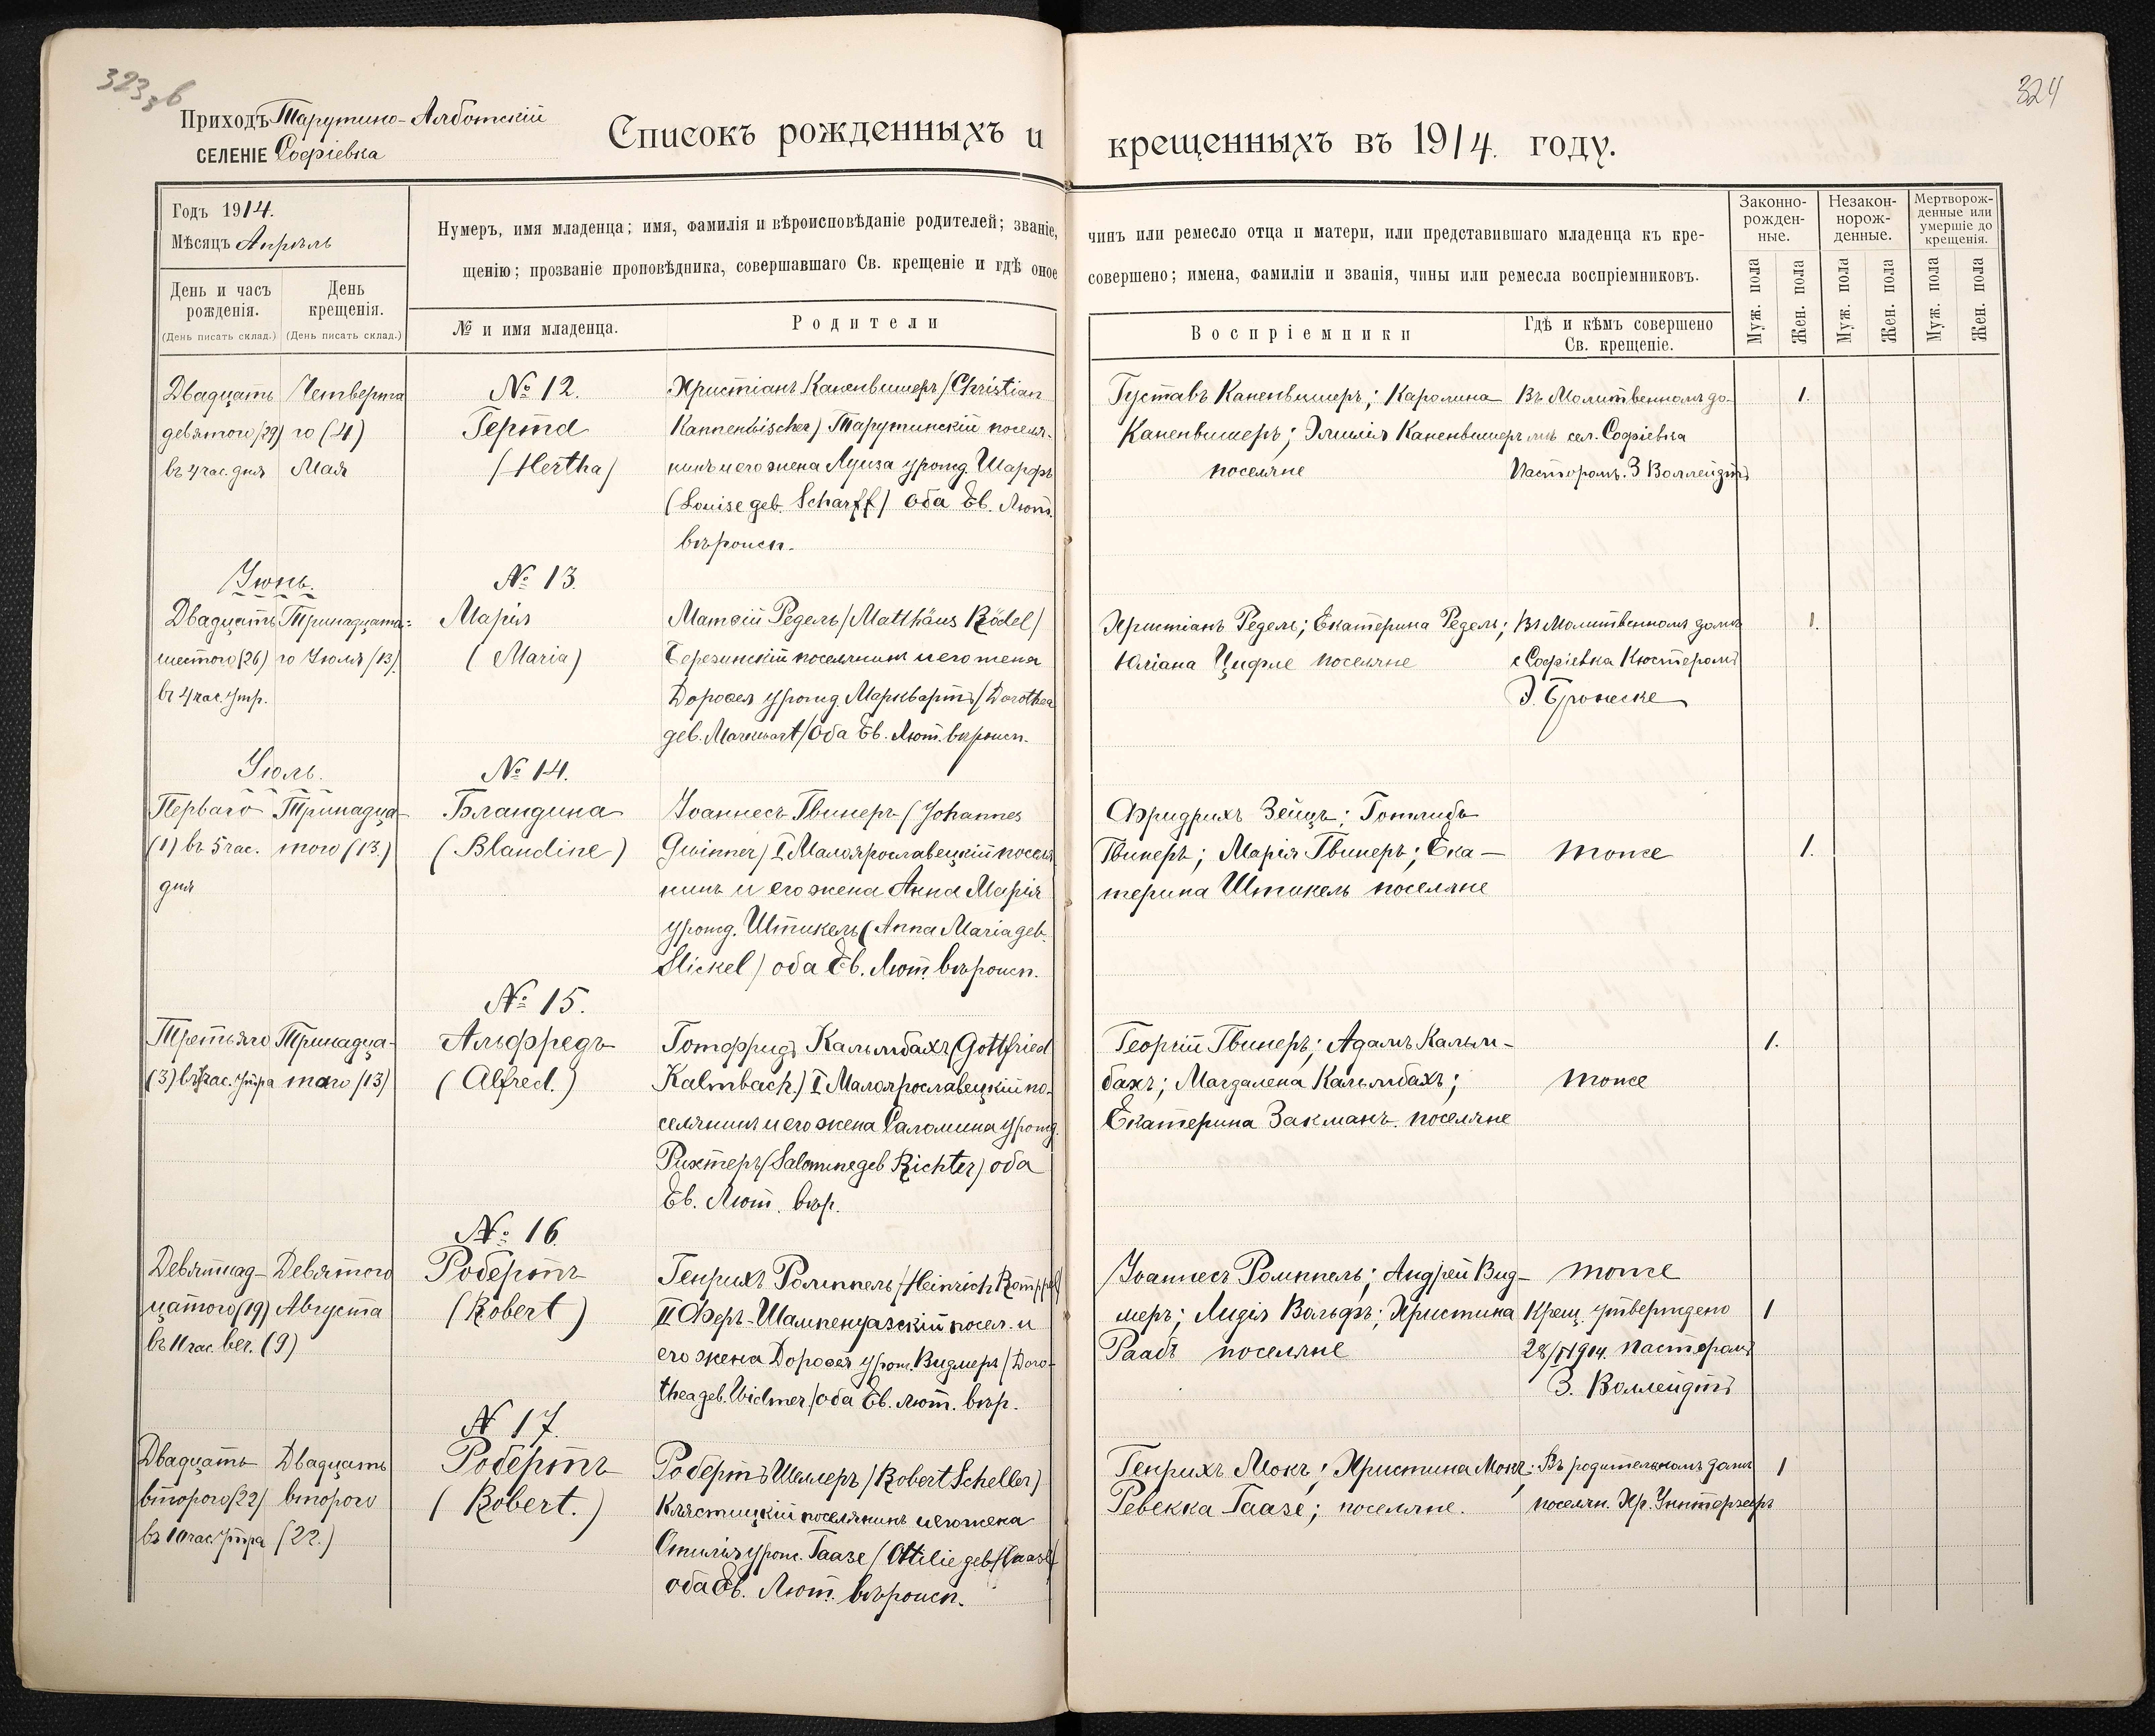 323 зв
324
Приходъ Тарутино-Алботскій
СЕЛЕНІЕ Софіевка
Списокъ рожденныхъ и крещенныхъ въ 1914. году.
Годъ 1914.
Мѣсяцъ Апрѣль
Нумеръ, имя младенца; имя, фамилія и вѣроисповѣданіе родителей; званіе, чинъ или ремесло отца и матери, или представившаго младенца къ кре-
щенію; прозваніе проповѣдника, совершавшаго Св. крещеніе и гдѣ оное совершено; имена, фамиліи и званія, чины или ремесла воспріемниковъ.
День и часъ
рожденія.
(День писать склад.)
День
крещенія.
(День писать склад.)
№ и имя младенца.
Родители
Воспріемники
Гдѣ и кѣмъ совершено
Св. крещеніе.
Законно-
рожден-
ные.
Незакон-
норож-
денные.
Мертворож-
денные или
умершіе до
крещенія.
Муж. пола
Жен. пола
Муж. пола
Жен. пола
Муж. пола
Жен. пола
Двадцать
девятого (29)
въ 4 час. дня
Четверта
го (4)
Мая
№ 12.
Герта
(Hertha)
Христіанъ Каненвишеръ (Christian
Kannenbischer) Тарутинскій поселя-
нинъ и его жена Луиза урожд. Шарфъ
(Louise geb. Scharff) оба Ев. Лют.
вѣроисп.
Густавъ Каненвишеръ; Каролина
Каненвишеръ; Эмилія Каненвишеръ
поселяне
Въ Молитвенномъ до-
мѣ сел. Софіевка
Пасторомъ З Воллейдтъ
1.
Іюнь.
Двадцать
шестого (26)
въ 4 час. утр.
Тринадцата-
го Іюля (13).
№ 13.
Марія
(Maria)
Матѳій Редель (Matthäus Rödel)
Березинскій поселянинъ и его жена
Доровея урожд. Марквартъ (Dorothea
geb. Markwart) оба Ев. Лют. вѣроисп.
Христіанъ Редель; Екатерина Редель;
Юліана Цифле поселяне
Въ Молитвенномъ домѣ
с Софіевка Кюстеромъ
Э. Бронеске
1.
Іюль.
Перваго
(1) въ 5 час.
дня
Тринадца-
того (13.)
№ 14.
Бландина
(Blandine)
Іоаннесъ Гвинеръ (Johannes
Gwinner) I Малоярославецкій поселя
нинъ и его жена Анна Марія
урожд. Штикель (Anna Maria geb.
Stickel) оба Ев. Лют. вѣроисп.
Фридрихъ Зейцъ; Готлибъ
Гвинеръ; Марія Гвинеръ; Ека-
терина Штикель поселяне
тоже
1.
Третьяго
(3) въ час. утра
Тринадца-
того (13)
№ 15.
Альфредъ
(Alfred.)
Готфридъ Кальмбахъ (Gottfried
Kalmbach.) I Малоярославецкій по-
селянинъ и его жена Саломина урожд.
Рихтеръ (Salomine geb Richter) оба
Ев. Лют. вѣр.
Георгій Гвинеръ; Адамъ Кальм-
бахъ; Магдалена Кальмбахъ;
Екатерина Закманъ. поселяне
тоже
1.
Девятнад-
цатого (19)
въ 11 час. веч.
Девятого
Августа
(9)
№ 16.
Робертъ
(Robert)
Генрихъ Ромппель (Heinrich Romppel)
II Феръ-Шампенуазскій посел. и
его жена Доровея урож. Видмеръ (Doro-
thea geb. Widmer.) оба Ев. лют. вѣр.
Іоаннесъ Ромппель; Андрей Вид-
меръ; Лидія Вольфъ; Христина
Раабъ поселяне
тоже
Крещ. утверждено
1914. пасторомъ
З. Воллейдтъ
1
Двадцать
второго (22)
въ 10 час. утра
Двадцать
второго
(22.)
№ 17.
Робертъ
(Robert.)
Робертъ Шеллеръ (Robert Scheller)
Клястицкій поселянинъ и его жена
Отилія урож. Гаазе (Ottilie geb. Haase)
оба Ев. Лют. вѣроисп.
Генрихъ Мокъ; Христина Мокъ;
Ревекка Гаазе; поселяне.
Въ родительскомъ домѣ
поселян. Хр. Унтерзееръ
1